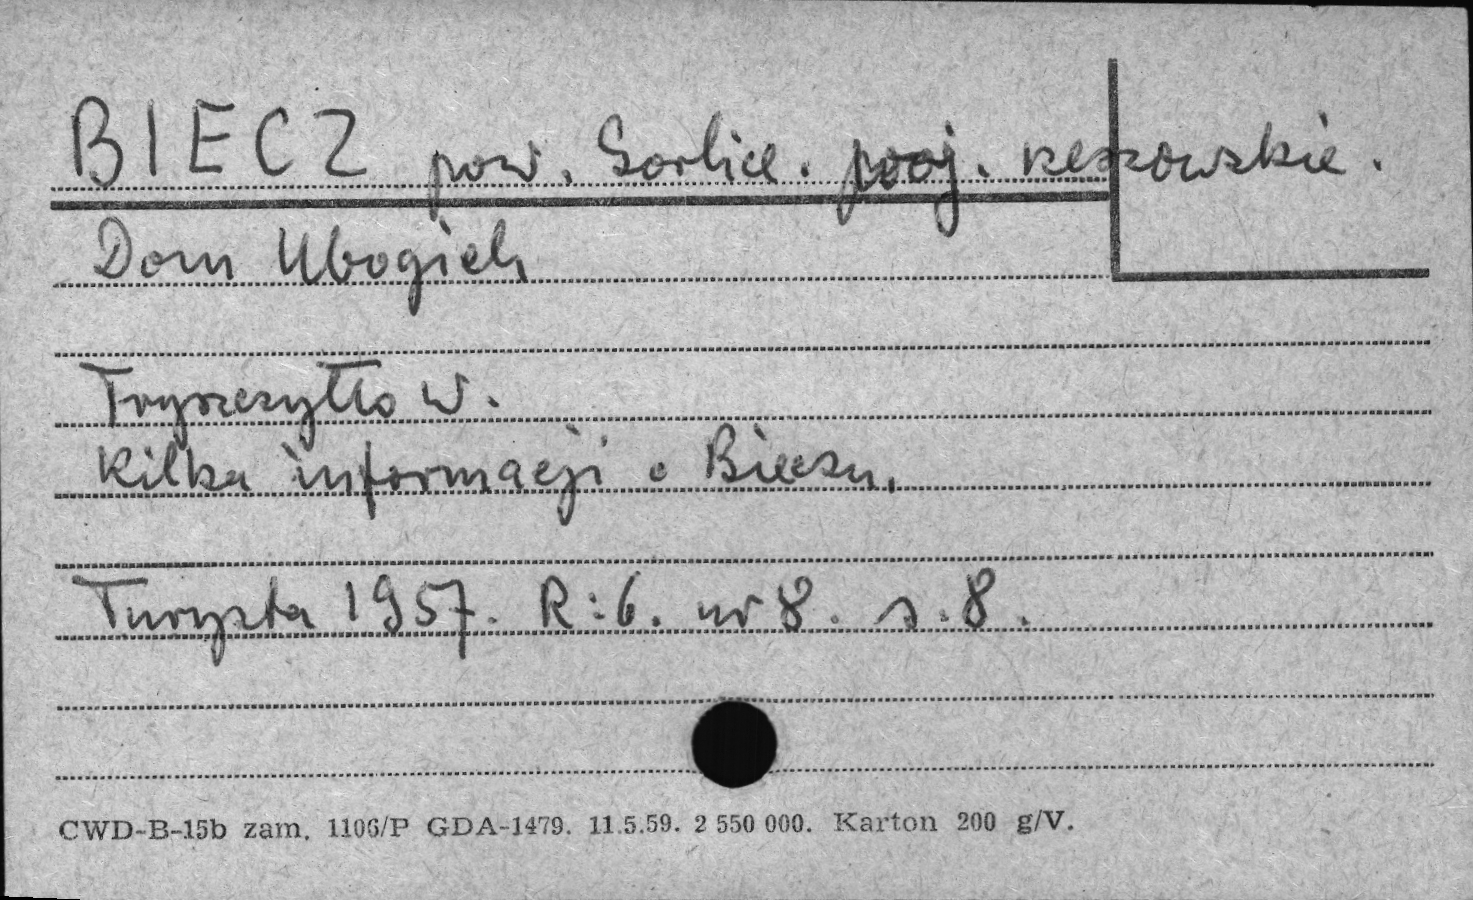 BIECZ pow. Gorlice. woj. rzeszowskie.
Dom Ubogich
Tryszczytło W.
Kilka informacji o Bieczu.
Turysta 1957. R:6. nr 8. s.8.
CWD-B-15b zam. 1106/P GDA-1479. 11.5.59. 2 550 000. Karton 200 g/V.